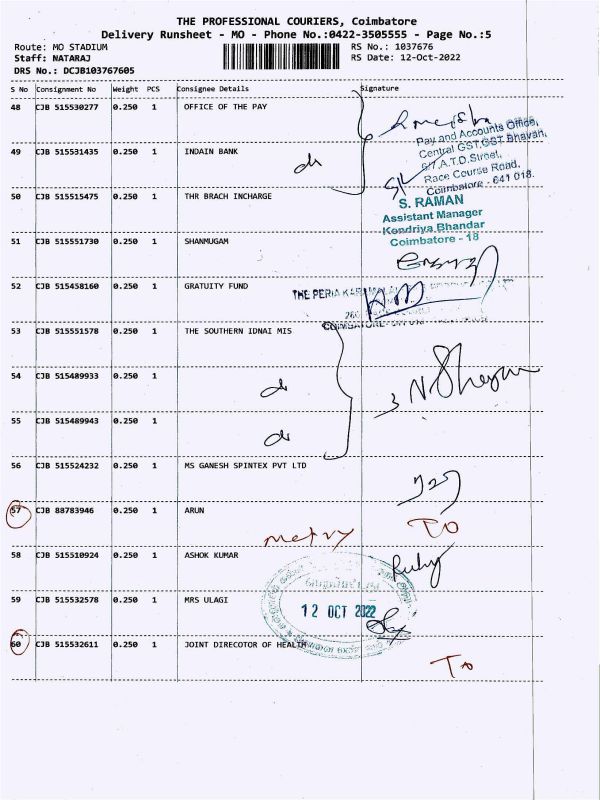 THE PROFESSIONAL COURIERS, Coimbatore
Delivery Runsheet - MO - Phone No.:0422-3505555 - Page No.:5
Route: MO STADIUM
RS No.: 1037676
Staff: NATARAJ
RS Date: 12-Oct-2022
DRS No.: DCJB103767605
S No Consignment No Weight PCS Consignee Details Signature
48 CJB 515530277 0.250 1 OFFICE OF THE PAY
Pay and Accounts Office,
Central GST,GST Bhavan,
6/7,A.T.D.Street,
Race Course Road,
Coimbatore - 641 018.
49 CJB 515531435 0.250 1 INDAIN BANK
do
50 CJB 515515475 0.250 1 THR BRACH INCHARGE
S. RAMAN
Assistant Manager
Kendriya Bhandar
Coimbatore - 18
51 CJB 515551730 0.250 1 SHANMUGAM
52 CJB 515458160 0.250 1 GRATUITY FUND
THE PERIA
COIMBATORE
53 CJB 515551578 0.250 1 THE SOUTHERN IDNAI MIS
54 CJB 515489933 0.250 1
do
55 CJB 515489943 0.250 1
do
56 CJB 515524232 0.250 1 MS GANESH SPINTEX PVT LTD
57 CJB 88783946 0.250 1 ARUN
TO
58 CJB 515510924 0.250 1 ASHOK KUMAR
59 CJB 515532578 0.250 1 MRS ULAGI
12 OCT 2022
60 CJB 515532611 0.250 1 JOINT DIRECOTOR OF HEALTH
To